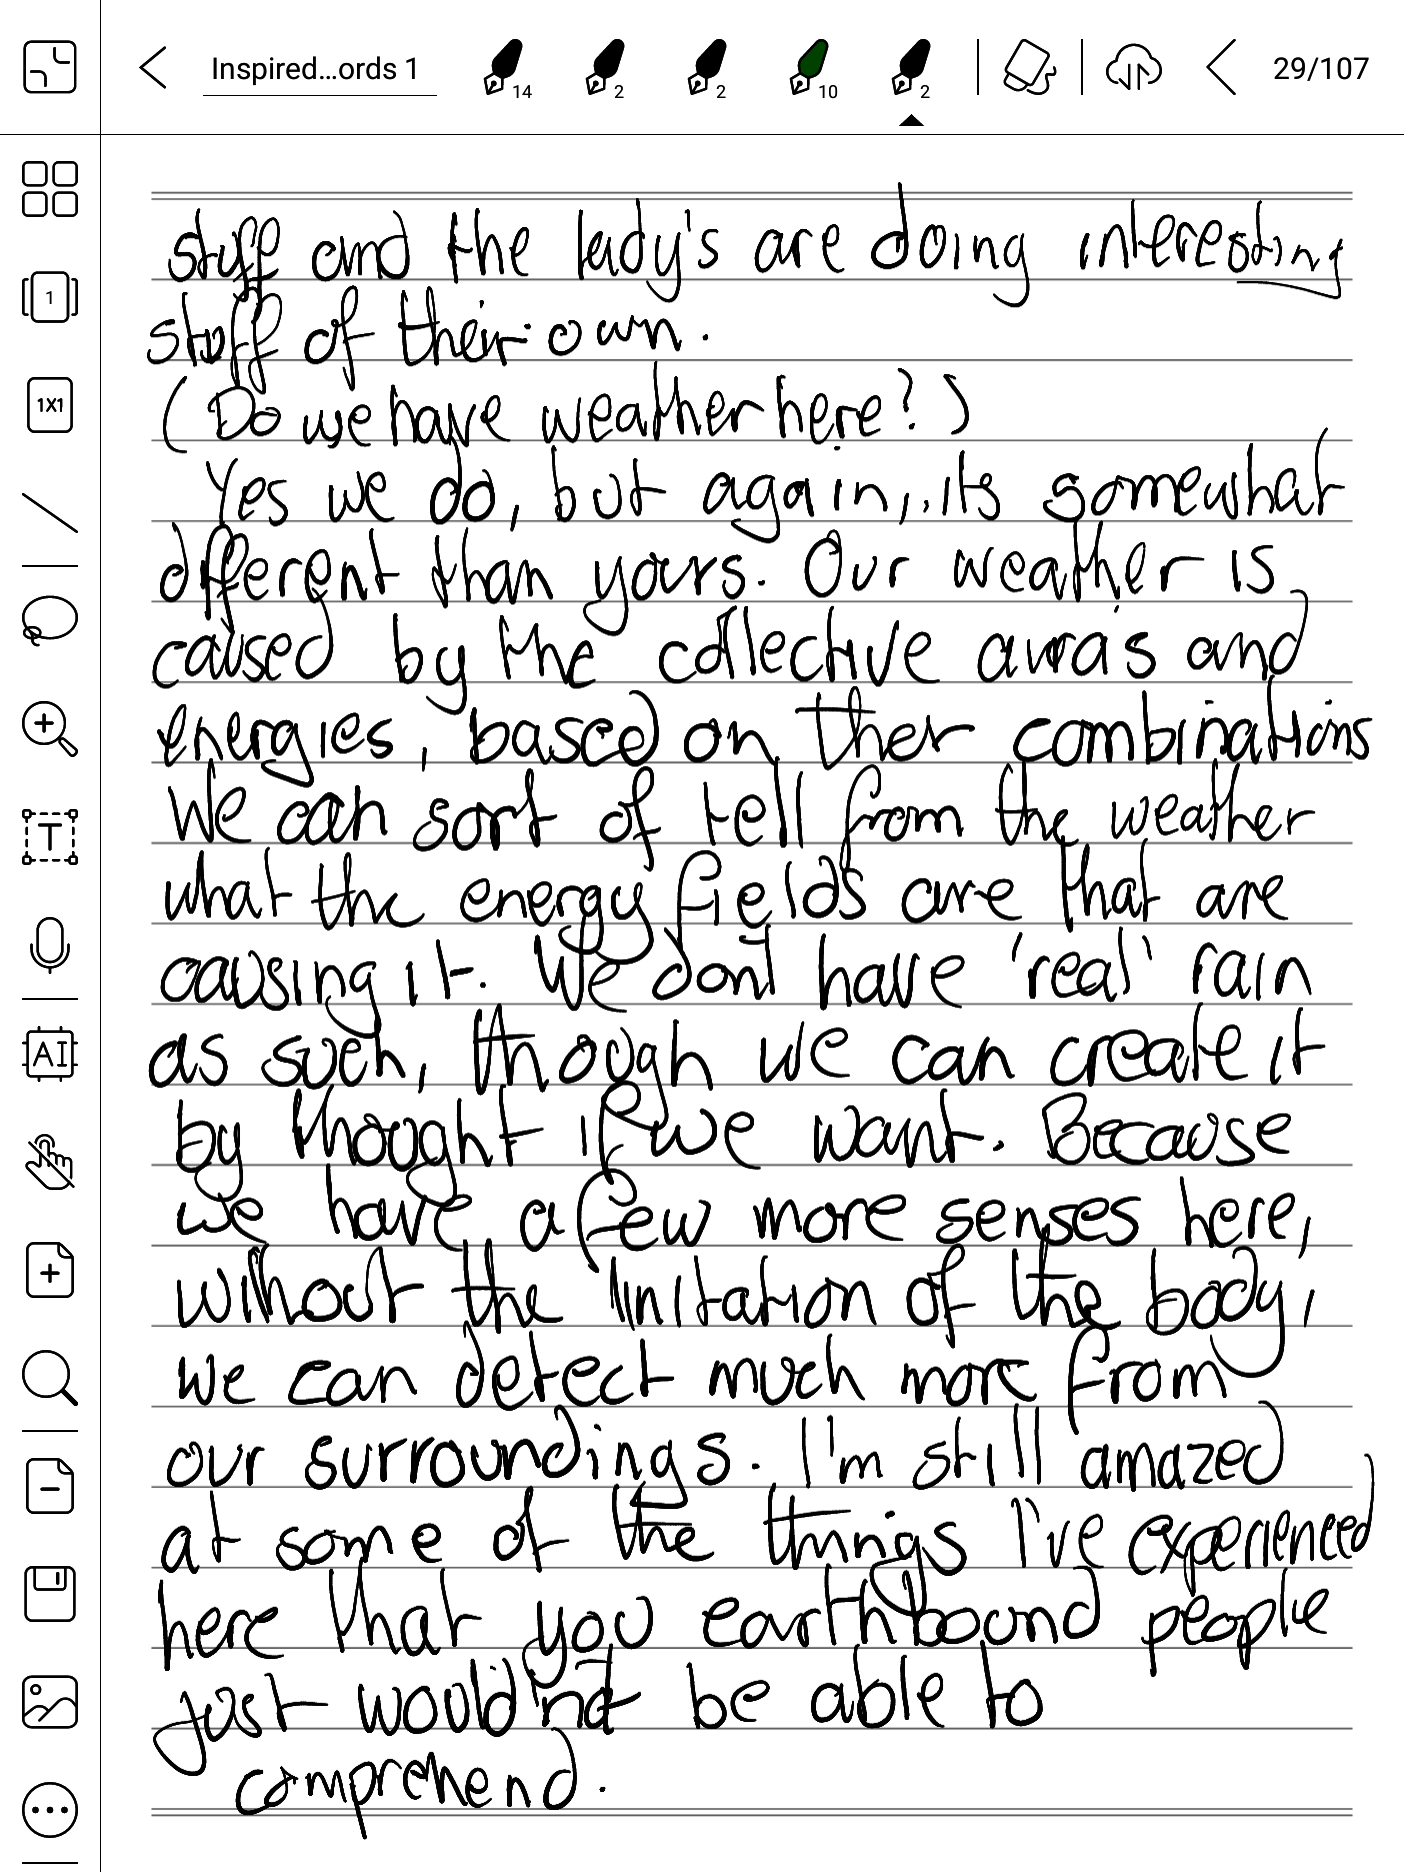 Inspired...ords 1
14
2
2
10
2
29/107
1
1X1
T
AI
stuff and the lady's are doing interesting
stuff of their own.
(Do we have weather here?)
Yes we do, but again, its somewhat
different than yours. Our weather is
caused by the collective aura's and
energies, based on ther combinations
We can sort of tell from the weather
what the energy fields are that are
causing it. We don't have 'real' rain
as such, though we can create it
by thought if we want. Because
we have a few more senses here,
without the limitation of the body,
we can detect much more from
our surroundings. I'm still amazed
at some of the things I've experienced
here that you earthbound people
just would'nt be able to
comprehend.